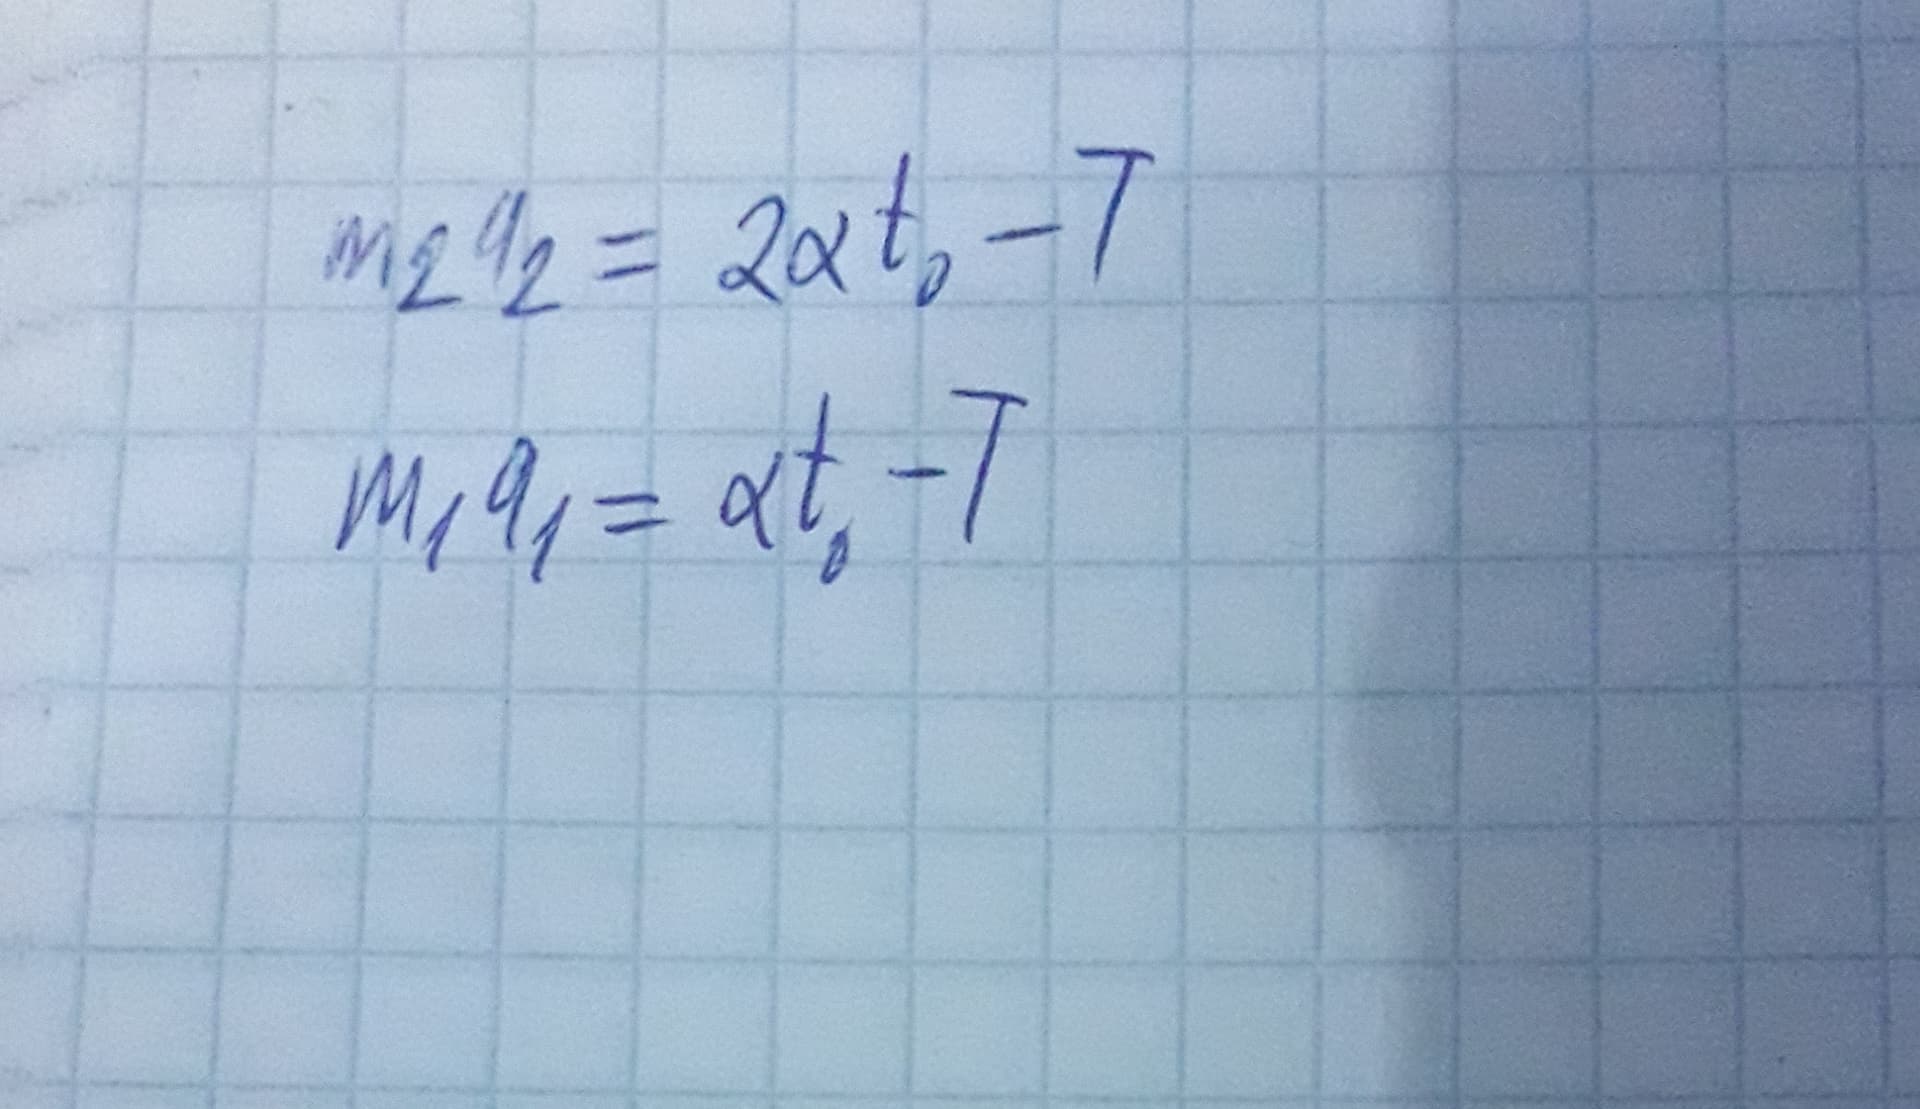 m₂a₂ = 2αt₀ - T
m₁a₁ = αt₀ - T